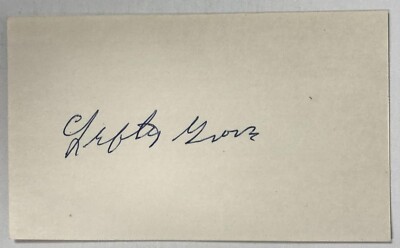 Lefty Grove